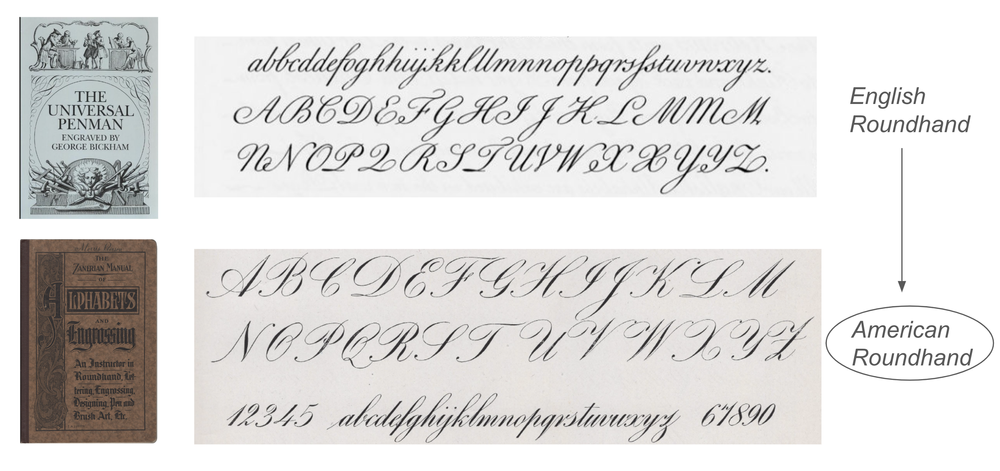 THE
UNIVERSAL
PENMAN
ENGRAVED BY
GEORGE BICKHAM
abbcddefoghhiijkkllllmnnnoppqrsfstuvnwxyz.
ABCDEFGHIJKLMMM.
NNOPQRSTUVWXXYYZ.
English
Roundhand
THE
ZANERIAN MANUAL
OF
ALPHABETS
AND
Engrossing
An Instructor in
Roundhand, Let-
tering, Engrossing,
Designing, Pen and
Brush Art, Etc.
ABCDEFGHIJKLM
NOPQRSTUVWXYZ
12345 abcdefghijklmnopqrstuvwxyz 67890
American
Roundhand